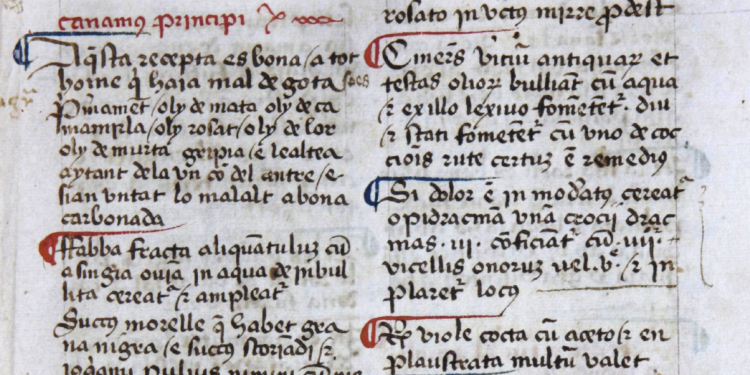 canamus principi
Aq̃sta recepta es bona / a tot
home q̃ haia mal de gota
P̃mamet / oly de mata oly de ca
mamilla / oly rosat / oly de lor
oly de murta gripia / e lealtea
aytant de la vn cõ del antre / e
sian vntat lo malalt a bona
carbonada
ffabba fracta aliquãtuluz cũ
a singia ouiã in aqua de inbul
lita cereat᷑ & ampleat᷑
Succus morelle q̃ habet gra
na nigra / e succus
rosato in vctus mirre ꝓdest
Cineris viciũ antiquaꝝ et
testas olioꝝ bulliant cũ aqua
& ex illo lexiuo fometet᷑ diu
& stati fomẽtet᷑ cũ vno de coc
ciõis rute certuz ẽ remediũ
Si dolor ẽ in modatus cereat᷑
opidracmã vnã crocij drac
mas · iii · cõficiant᷑ cũ · iiii ·
vicellis onoruz vel · v · & in
plaret᷑ locus
viole cocta cũ aceto & en
plaustrata multũ valet